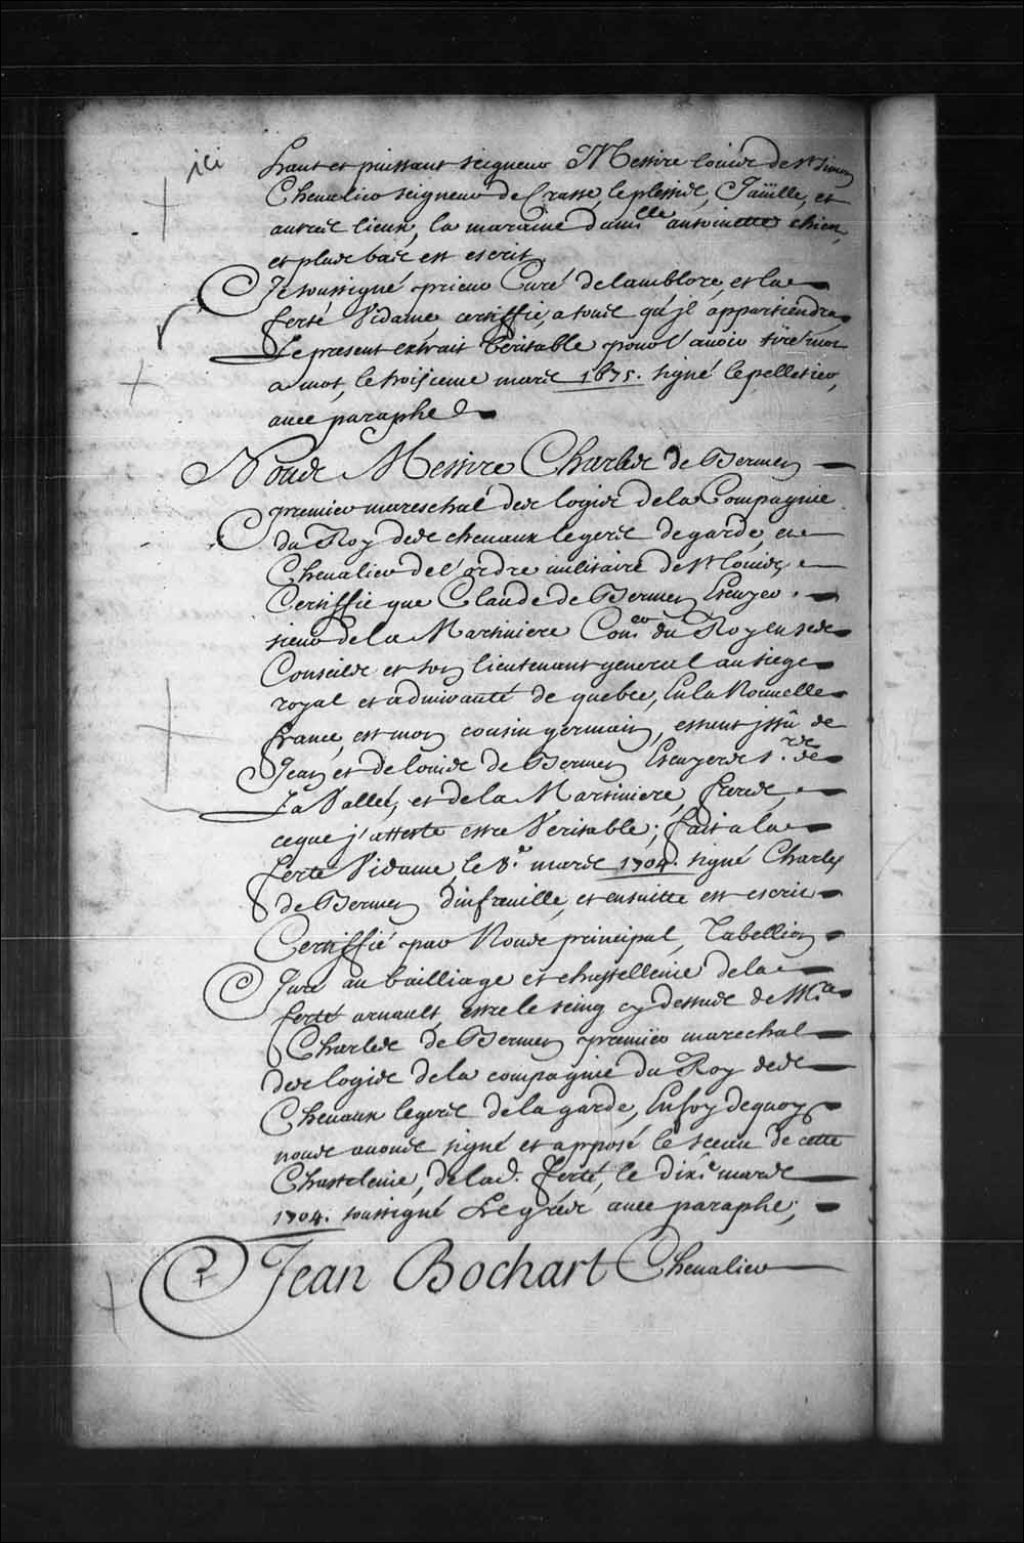 ici
haut et puissant seigneur Messire Louis de St Simon
Chevalier seigneur de Crasse, le plessis, Jaüille, et
autres lieux, la maraine damlle antoinette
et plus bas est escrit,
Je soussigné prieur Curé de lamblore, et la
ferté Vidame, certiffie, a tous qu'jl appartiendra
Le present extrait Veritable pour l'avoir tiré mot
a mot, le troisieme mars 1675. signé lepelletier,
avec paraphe
Nous Messire Charles de Bermen
premier mareschal des logis de la Compagnie
du Roy des chevaux legers de garde, et
Chevalier de l'ordre militaire de St Louis,
Certiffie que Claude de Bermen Escuyer
sieur de la Martiniere Coner du Roy en ses
Conseils et son lieutenant general au siege
royal et admirauté de quebec, En la Nouvelle
france, est mon cousin germain, estant jssû de
Jean et de Louis de Bermen Escuyers srs de
La Vallée, et de la Martiniere, freres,
ceque j'atteste estre Veritable; fait a la
ferté Vidame, le 8e mars 1704. signé Charles
de Bermen dinfreville, et ensuitte est escrit
Certiffié par Nous principal, Tabellion
Juré au bailliage et chastellenie de la
ferté arnault, estre le seing cy dessus de Mre
Charles de Bermen premier marechal
des logis de la compagnie du Roy des
Chevaux legers de la garde, En foy dequoy
nous avons signé et apposé le sceau de cette
Chastelenie, de lad. ferté, le dixe mars
1704. soussigné Legrés avec paraphe;
Jean Bochart Chevalier